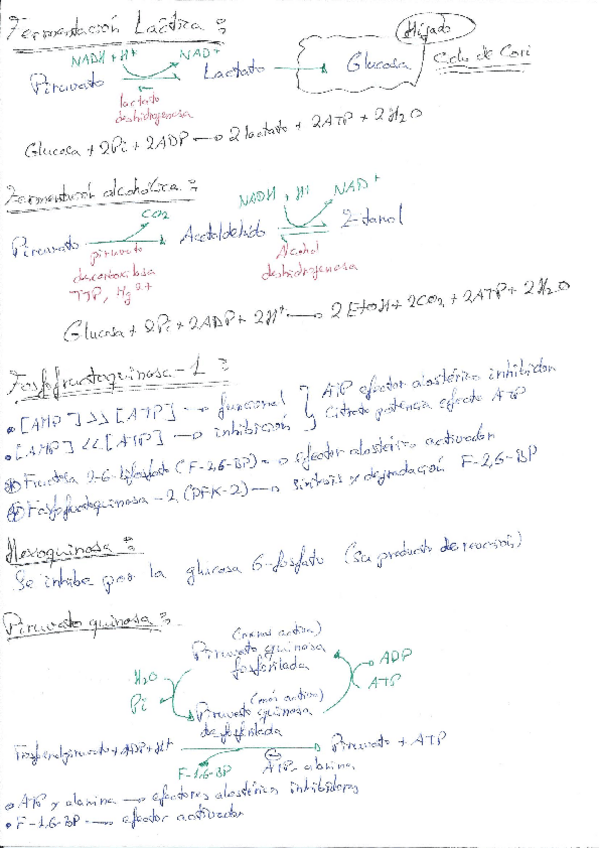 Fermentación Láctica:
Hígado
NADH + H+ NAD+
Piruvato Lactato Glucosa Ciclo de Cori
lactato
deshidrogenasa
Glucosa + 2Pi + 2ADP → 2 lactato + 2ATP + 2H2O
Fermentación alcohólica:
CO2 NADH, H+ NAD+
Piruvato Acetaldehído Etanol
piruvato
decarboxilasa
TTP, Mg2+
Alcohol
deshidrogenasa
Glucosa + 2Pi + 2ADP + 2H+ → 2 EtOH + 2CO2 + 2ATP + 2H2O
Fosfofructoquinasa-1:
[AMP] >> [ATP] → funcional
[AMP] << [ATP] → inhibición
ATP efector alostérico inhibidor
Citrato potencia efecto ATP
Fructosa 2-6-bifosfato (F-2,6-BP) → efector alostérico activador
Fosfofructoquinasa-2 (PFK-2) → síntesis y degradación F-2,6-BP
Hexoquinasa:
Se inhibe por la glucosa 6-fosfato (su producto de reacción)
Piruvato quinasa:
(menos activa)
Piruvato quinasa
fosforilada
H2O
Pi
ADP
ATP
(más activa)
Piruvato quinasa
desfosforilada
Fosfoenolpiruvato + ADP + H+ Piruvato + ATP
F-1,6-BP ATP, alanina
ATP y alanina → efectores alostéricos inhibidores
F-1,6-BP → efector activador